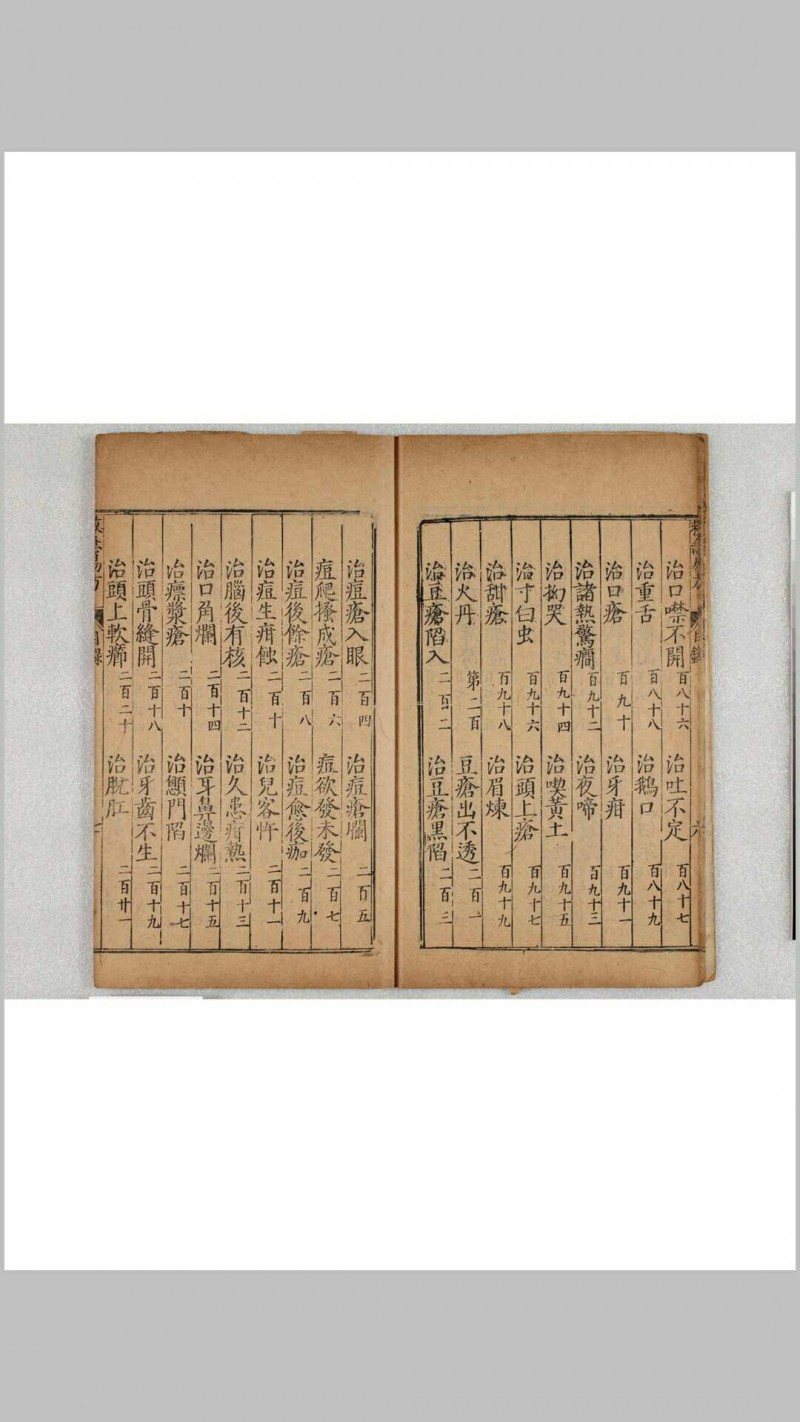 治口噤不開 百八十六 治吐不定 百八十七
治重舌 百八十八 治鵝口 百八十九
治口瘡 百九十 治牙疳 百九十一
治諸熱驚癎 百九十二 治夜啼 百九十三
治拗哭 百九十四 治喫黃土 百九十五
治寸白虫 百九十六 治頭上瘡 百九十七
治甜瘡 百九十八 治眉煉 百九十九
治火丹 第二百 豆瘡出不透 二百一
治豆瘡陷入 二百二 治豆瘡黑陷 二百三
治痘瘡入眼 二百四 治痘瘡爛 二百五
痘爬搔成瘡 二百六 痘欲發未發 二百七
治痘後餘瘡 二百八 治痘愈後痂 二百九
治痘生疳蝕 二百十 治兒客忤 二百十一
治腦後有核 二百十二 治久患疳熱 二百十三
治口角爛 二百十四 治耳鼻邊爛 二百十五
治瘭漿瘡 二百十 治顖門陷 二百十七
治頭骨縫開 二百十八 治牙齒不生 二百十九
治頭上軟癤 二百二十 治脫肛 二百廿一
目錄